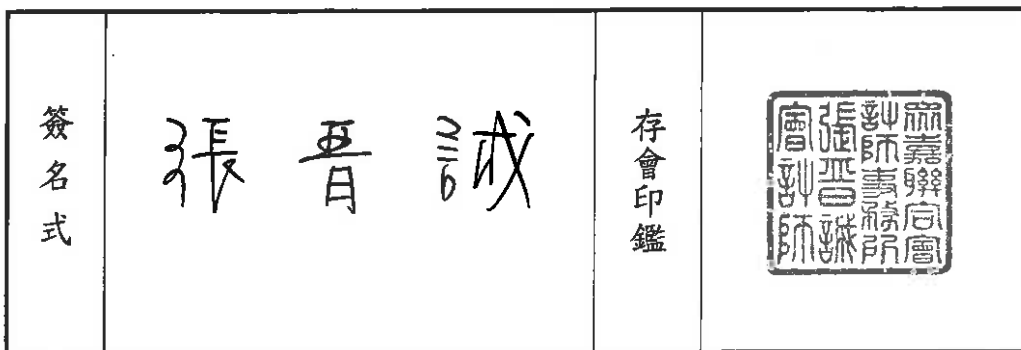 簽名式
張晉誠
存會印鑑
眾嘉聯合會
計師事務所
張晉誠
會計師